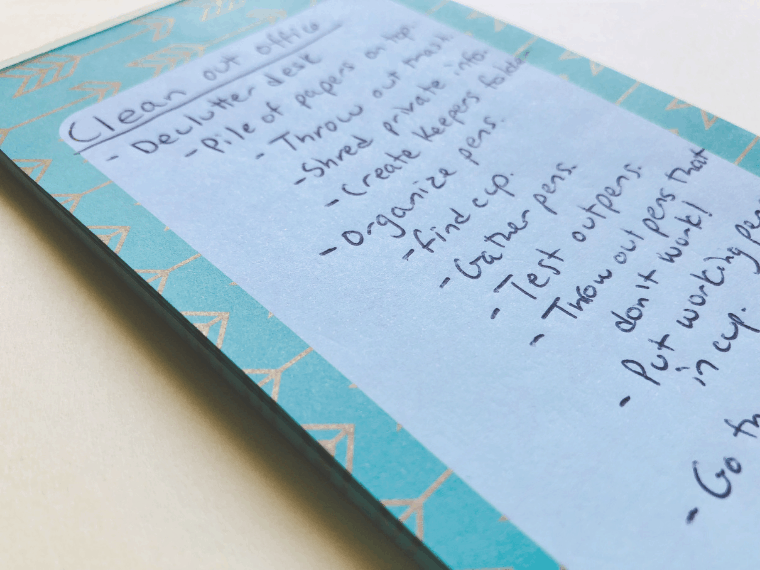 Clean out office
- Declutter desk
- Pile of papers on top.
- Throw out trash.
- Shred private info.
- Create Keepers folder
- Organize pens.
- find cup.
- Gather pens.
- Test out pens.
- Throw out pens that
don't work!
- Put working
in cup.
- Go